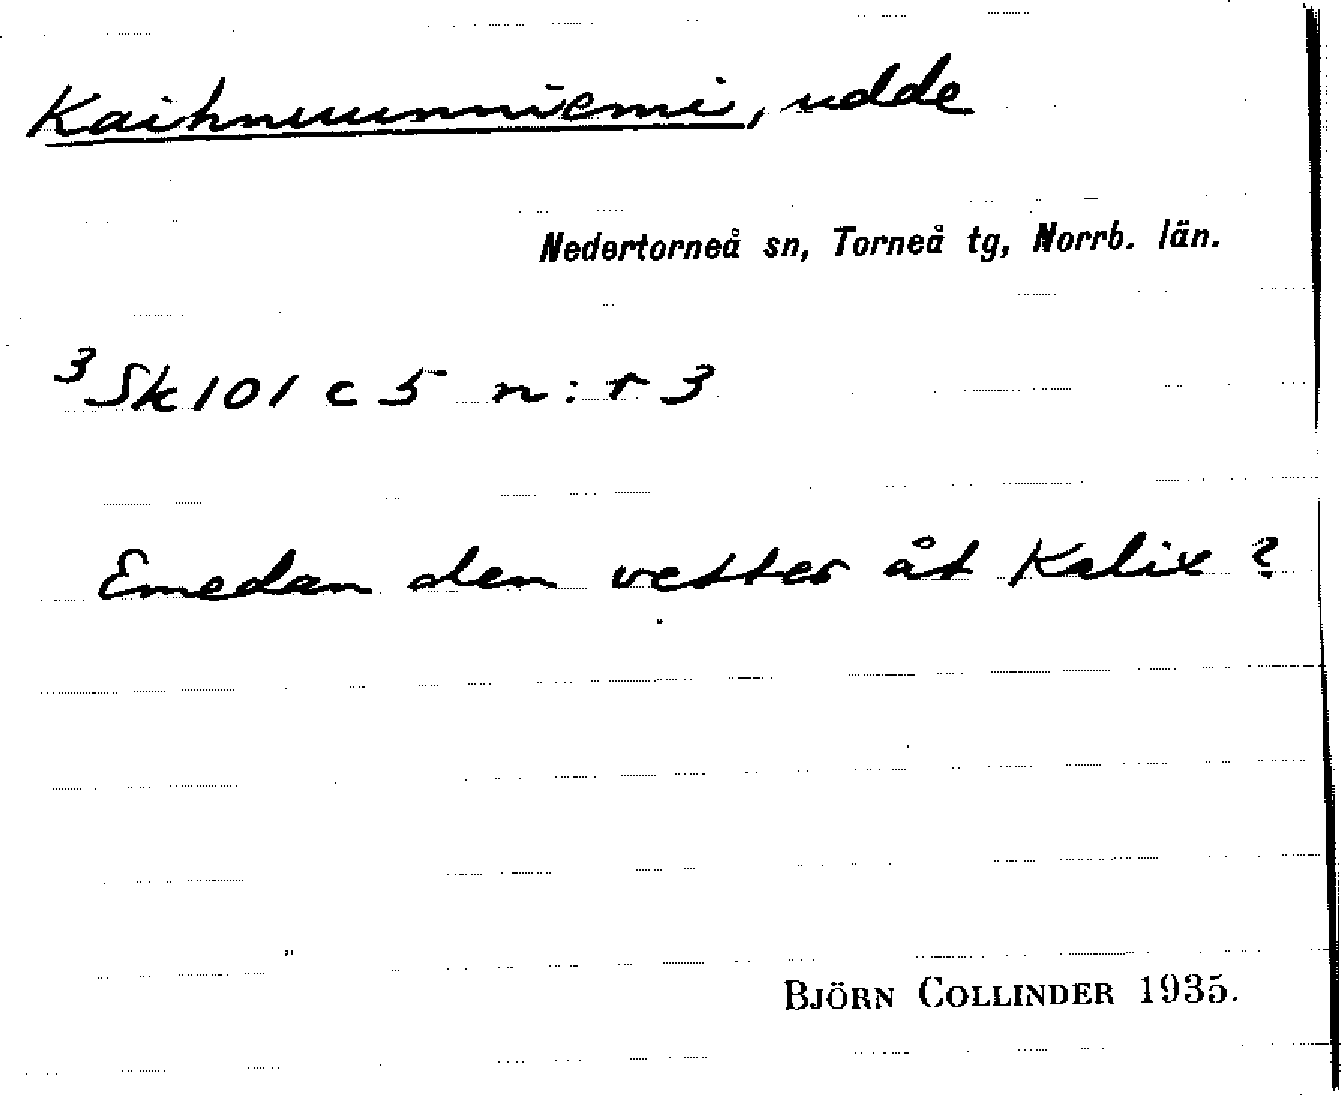 Kaihnuunniemi, udde
Nedertorneå sn, Torneå tg, Norrb. län.
³Sk 101 c 5 n:r 3
Emedan den vetter åt Kalix?
BJÖRN COLLINDER 1935.